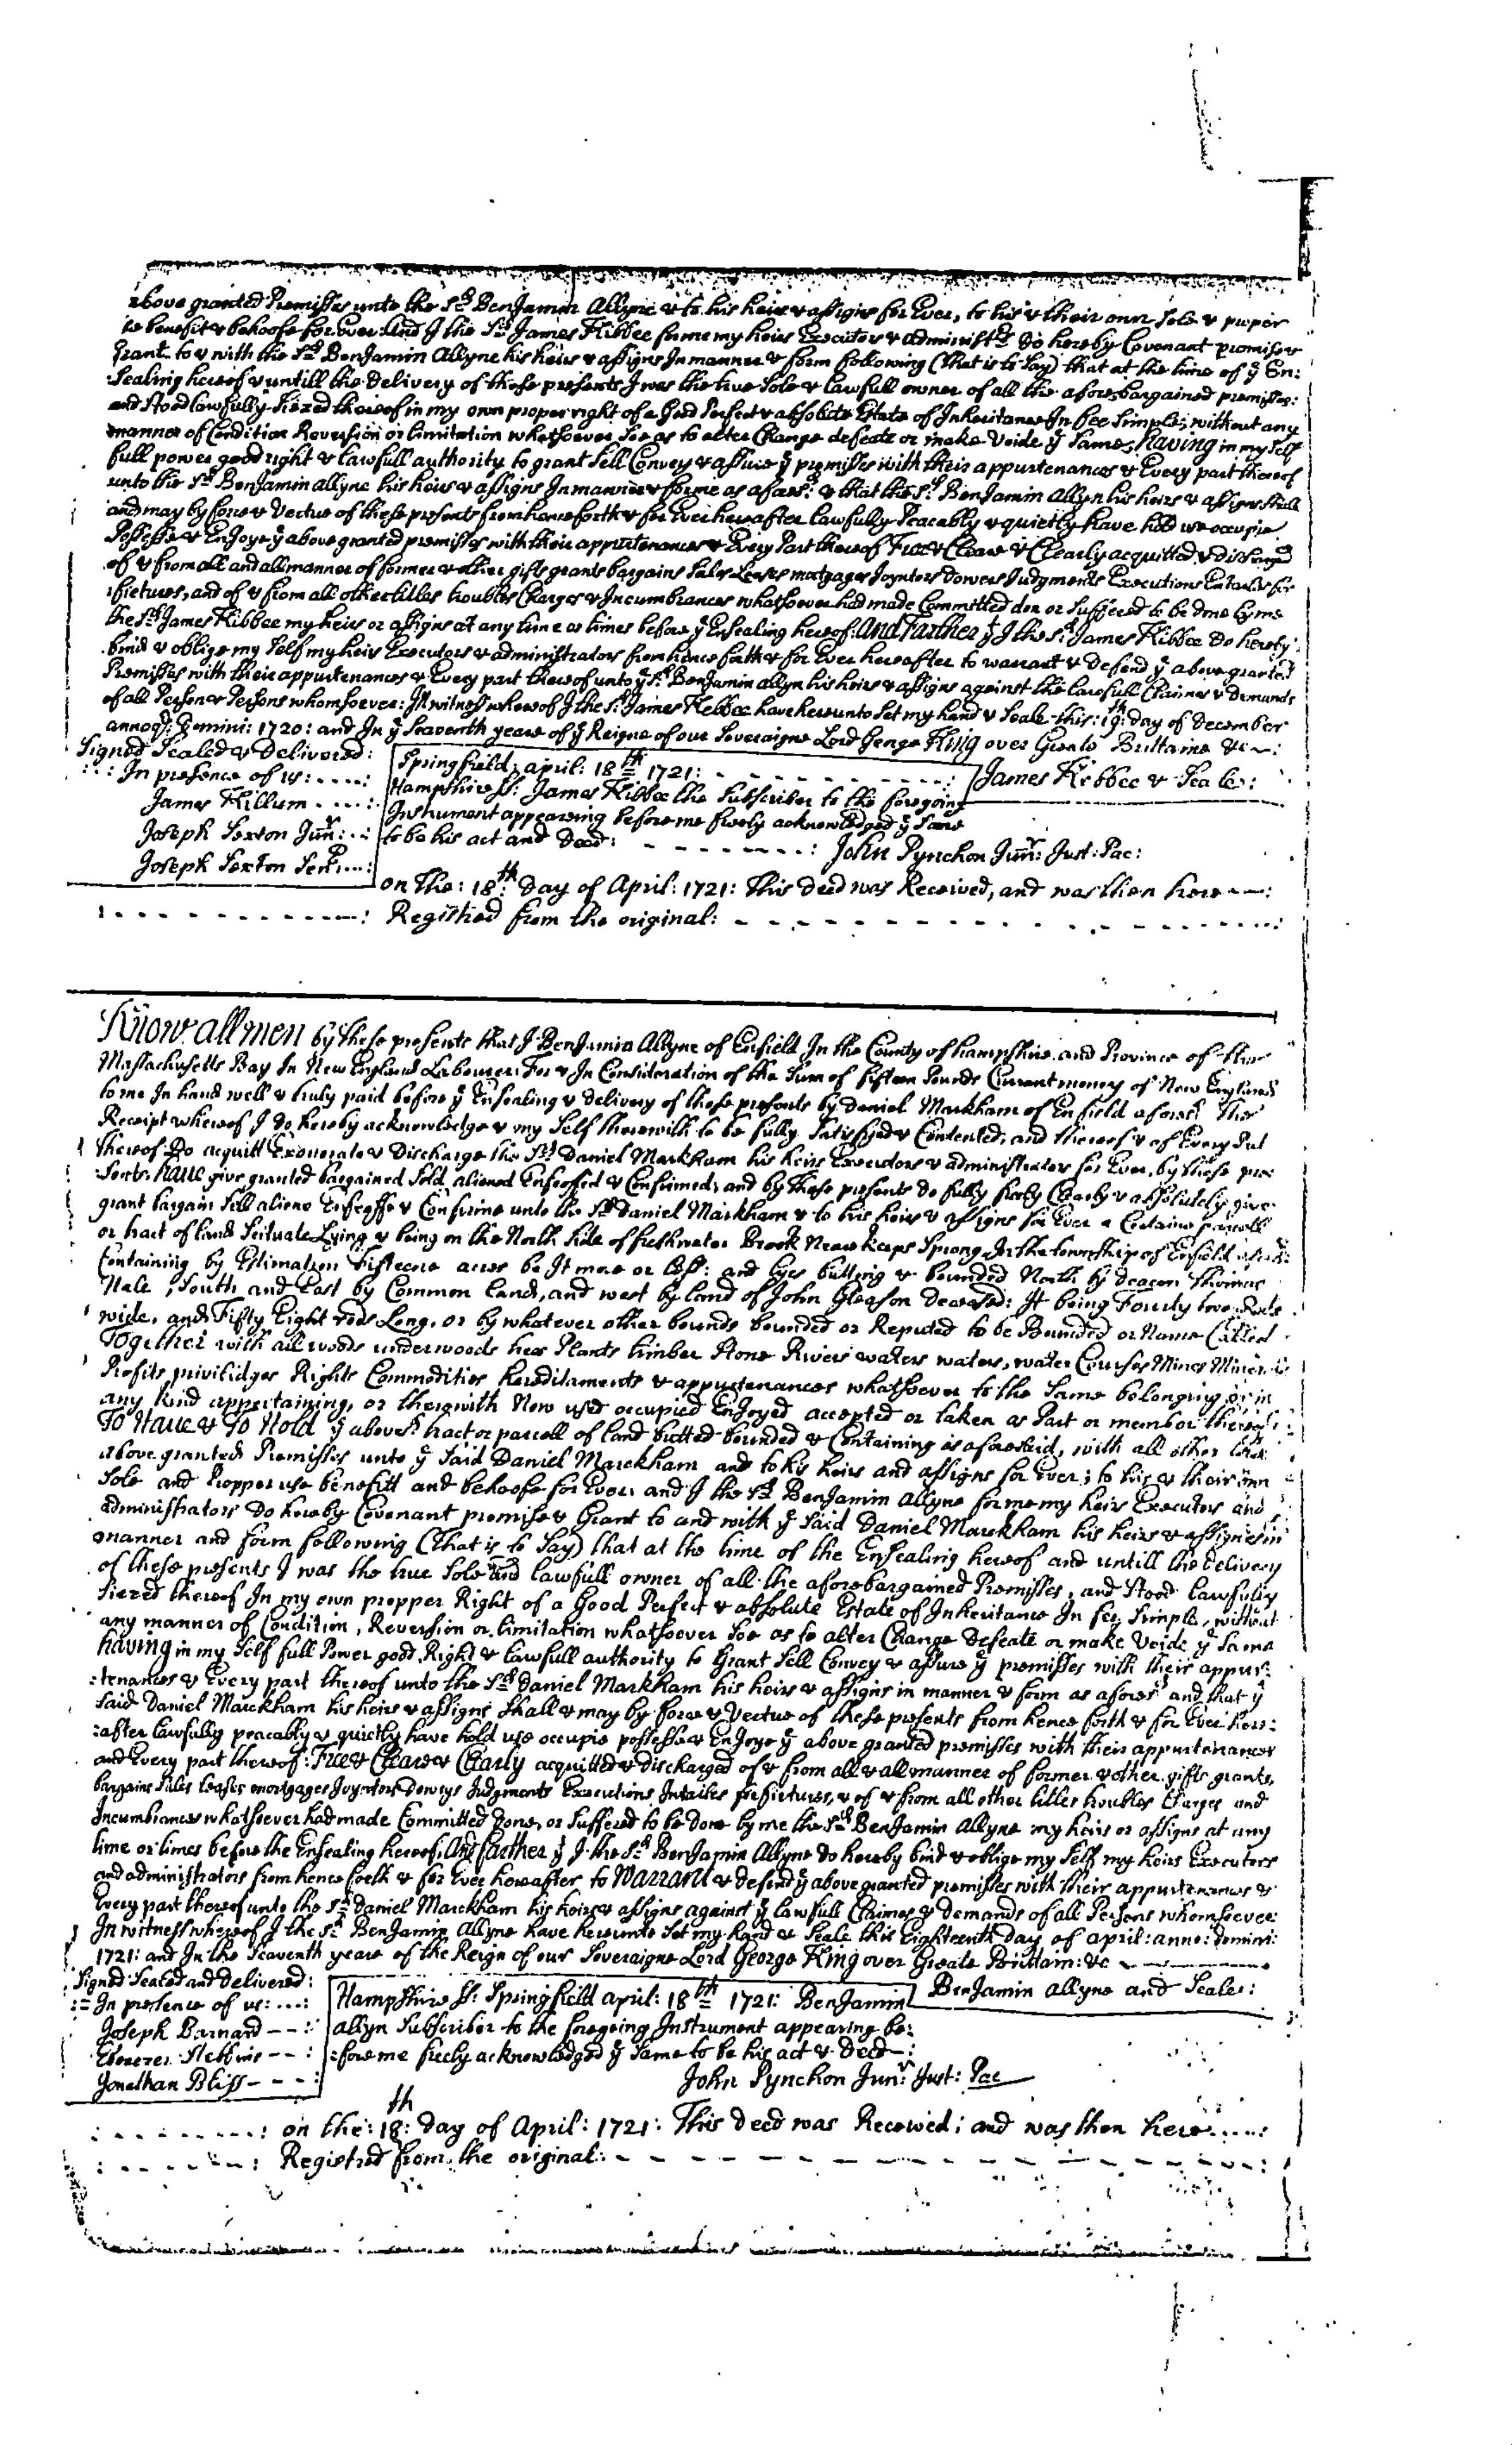 above granted Premisses unto the sd Benjamin Allyne & to his heirs & assigns for Ever, to his & their own sole & proper
use benefit & behoofe for ever And I the sd James Kibbee for me my heirs Executors & administrs do hereby Covenant promise &
Grant to & with the sd Benjamin Allyne his heirs & assigns In manner & form following (That is to Say) that at the time of ye En:
:sealing hereof & untill the delivery of these presents I was the true sole & lawfull owner of all the afore bargained premisses:
and stood lawfully siezed thereof in my own proper right of a Good Perfect & absolute Estate of Inheritance In fee simple, without any
manner of Condition Reversion or limitation whatsoever soe as to alter Change defeate or make Voide ye same; having in my self
full power good right & lawfull authority to grant sell Convey & assure ye premisses with their appurtenances & Every part thereof
unto the sd Benjamin allyne his heirs & assigns In manner & forme as aforesd & that the sd Benjamin Allyn his heirs & assigns shall
and may by force & Vertue of these presents from hence forth & for Ever hereafter lawfully Peacably & quietly have hold use occupie
Possesse & Enjoye ye above granted premisses with their appurtenances & Every Part thereof Free & Cleare & Clearly acquitted & discharged
of & from all and all manner of former & other gifts grants bargains sales Leases mortgages Joyntors dowers Judgments Executions Entailes for
:fietures, and of & from all other titles troubles Charges & Incumbrances whatsoever had made Committed don or suffered to be done by me
the sd James Kibbee my heirs or assigns at any time or times before ye Ensealing hereof: And farther yt I the sd James Kibbee do hereby
bind & oblige my self my heirs Executors & administrators from hence forth & for Ever hereafter to warrant & defend ye above granted
Premisses with their appurtenances & Every part thereof unto ye sd Benjamin allyn his heirs & assigns against the lawfull Claimes & demands
of all Person & Persons whomsoever: In witness whereof I the sd James Kebbee have hereunto set my hand & seale this: 19th: day of December
annoqe: Domini: 1720: and In ye seaventh yeare of ye Reigne of our soveraigne Lord George King over Greate Brittaine &c—:
Signed Sealed & Delivered:
::: In presence of us: ....:
James Killum ....:
Joseph Sexton Junr: ..:
Joseph Sexton Senr: ...:
Springfield, april: 18th 1721:
Hampshire ss: James Kibbee the subscriber to the foregoing
Instrument appearing before me freely acknowledged ye same
to be his act and deed: - - - - - - - -:
James Kebbee & Seale:
John Pynchon Junr: Just: Pac:
on the: 18th: Day of April: 1721: This deed was Received, and was then here —:
: Registred from the original:
Know all men by these presents that I Benjamin Allyne of Enfield In the County of hampshire and Province of the
Massachusetts Bay In New England Labourer: For & In Consideration of the Sum of fifteen Pounds Currant money of New England
to me In hand well & truly paid before ye Ensealing & delivery of these presents by Daniel Markham of Enfield aforesd The
Receipt whereof I do hereby acknowledge & my self therewith to be fully satisfyed & Contented, and thereof & of Every Part
thereof Do acquitt Exonerate & Discharge the sd Daniel Markham his heirs Executors & administrators for Ever, by these pre
:sents, have give granted bargained sold, aliened Enfeoffed & Confirmed, and by these presents do fully freely Clearly & absolutely give
grant bargain sell aliene Enfeoffe & Confirme unto the sd Daniel Markham & to his heirs & assigns for Ever a Certaine parcell
or tract of land scituate Lying & being on the North side of freshwater Brook Near keeps Sprong In the township of Enfield aforesd:
Containing by Estimation fifteene acres be It more or less: and lyes butting & bounded North by deacon
Hale, South and East by Common land, and west by land of John Gleason Deceased: It being Fourty two Rods
wide, and Fifty Eight rods Long, or by whatever other bounds bounded or Reputed to be Bounded or Name Called
Together with all woods underwoods trees Plants timber stone Rivers waters waters, water Courses Mines Minerals
Profits priviledges Rights Commodities hereditaments & appurtenances whatsoever to the same belonging or in
any kind appertaining, or therewith Now used occupied Enjoyed accepted or taken as Part or member thereof:
To Have & To Hold ye abovesd tract or parcell of land butted bounded & Containing as aforesaid, with all other the
above granted Premisses unto ye said Daniel Marckham and to his heirs and assigns for Ever; to his & their own
sole and Propper use benefitt and behoofe for Ever: and I the sd Benjamin allyne for me my heirs Executors and
administrators Do hereby Covenant promise & Grant to and with ye said Daniel Marckham his heirs & assignes in
manner and form following (That is to Say) that at the time of the Ensealing hereof and untill the delivery
of these presents I was the true sole and lawfull owner of all the afore bargained Premisses, and stood lawfully
siezed thereof In my own propper Right of a Good Perfect & absolute Estate of Inheritance In fee simple, without
any manner of Condition, Reversion or limitation whatsoever soe as to alter Change Defeate or make Voide ye same
having in my self full Power good Right & lawfull authority to Grant sell Convey & assure ye premisses with their appur:
:tenances & Every part thereof unto the sd Daniel Markham his heirs & assigns in manner & form as aforesd and that ye
said Daniel Marckham his heirs & assigns shall & may by force & Vertue of these presents from hence forth & for Ever here:
:after lawfully peacably & quietly have hold use occupie possesse & Enjoye ye above granted premisses with their appurtenances
and Every part thereof: Free & Cleare & Clearly acquitted & discharged of & from all & all manner of former & other gifts grants,
bargains sales leases mortgages Joyntors Dowrys Judgments Executions Intailes forfietures, & of & from all other titles troubles Charges and
Incumbrances whatsoever had made Committed done, or suffered to be done by me the sd Benjamin allyne my heirs or assigns at any
time or times before the Ensealing hereof. And farther yt I the sd Benjamin Allyne do hereby bind & oblige my self my heirs Executors
and administrators from hence forth & for Ever hereafter to Warrant & defend ye above granted premisses with their appurtenances &
Every part thereof unto the sd Daniel Marckham his heirs & assigns against ye lawfull Claimes & demands of all Persons whomsoever:
In witness whereof I the sd Benjamin Allyne have hereunto set my hand & seale this Eighteenth Day of april: anno: domini:
1721: and In the seaventh yeare of the Reign of our soveraigne Lord George King over Greate Brittain: &c
Signed Sealed and delivered:
:= In presence of us: ...:
Joseph Barnard --:
Ebenezer Stebbins --:
Jonathan Bliss ---:
Hampshire ss: Springfield april: 18th 1721: Benjamin
allyn subscriber to the foregoing Instrument appearing be:
:fore me freely acknowledged ye same to be his act & deed—:
Benjamin allyne and Seale:
John Pynchon Junr: Just: Pac
: on the: 18th: day of April: 1721: This deed was Received; and was then here....:
: Registred from the original: